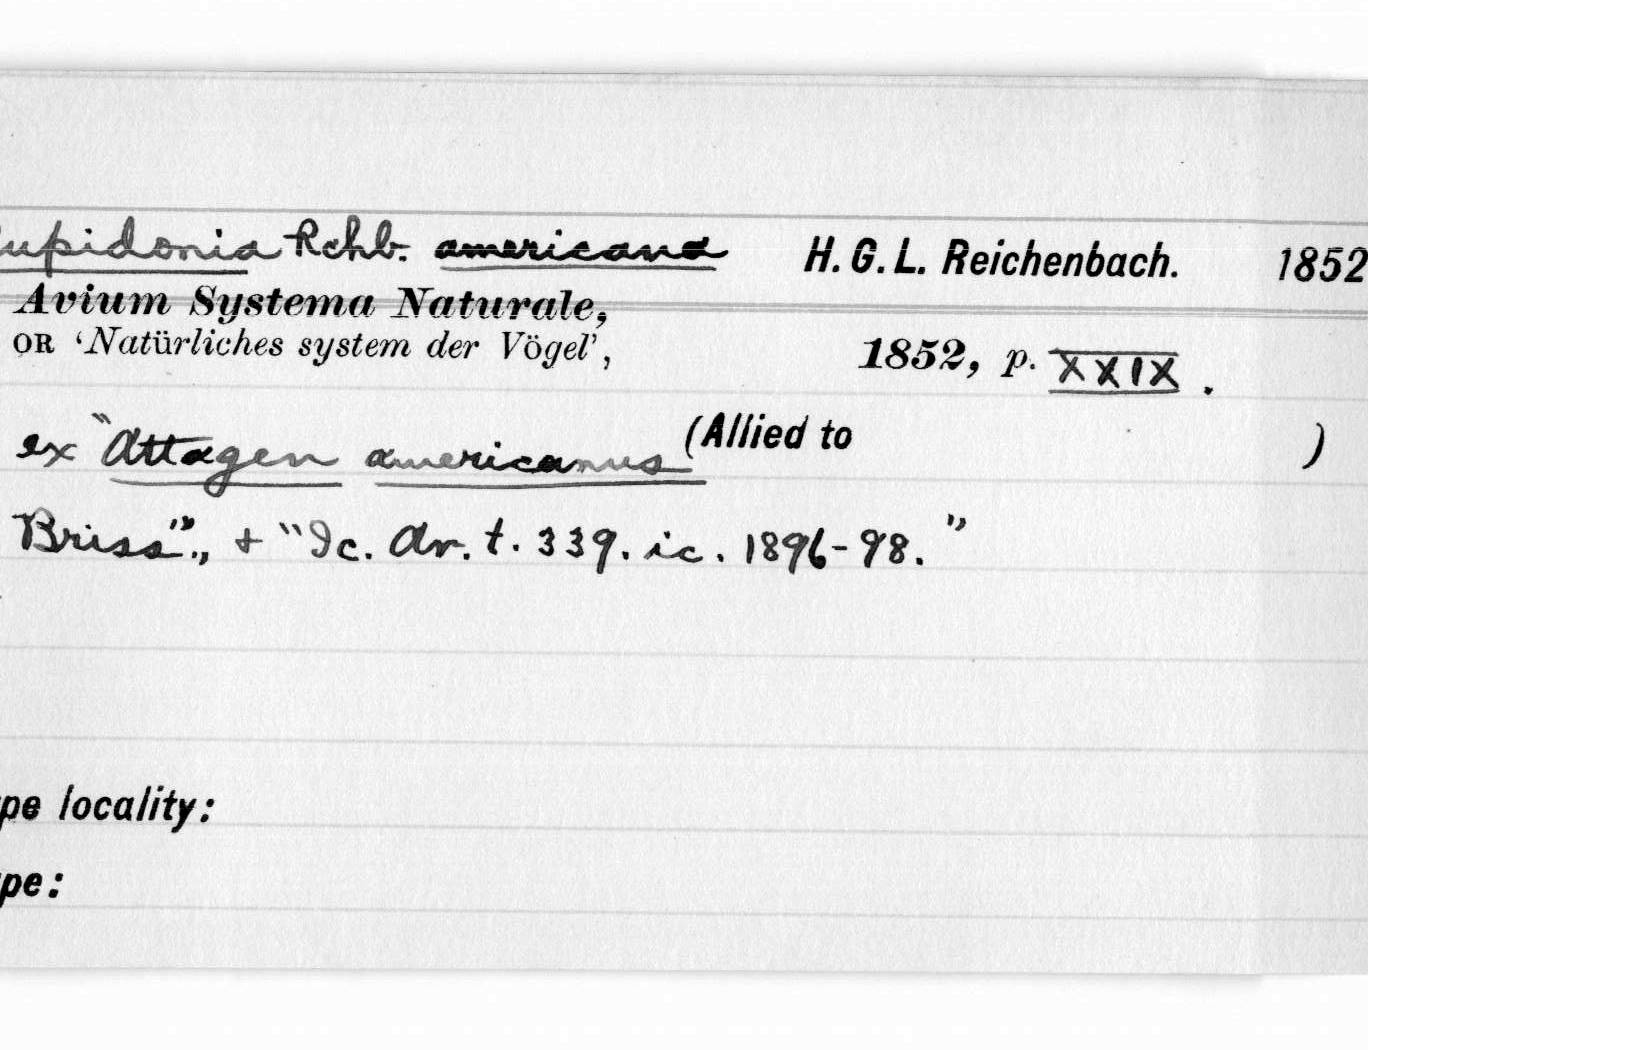 upidonia Rchb. americana H. G. L. Reichenbach. 1852
Avium Systema Naturale,
OR ‘Natürliches system der Vögel’, 1852, p. XXIX.
ex "Attagen americanus (Allied to )
Briss"., + "Ic. Av. t. 339. ic. 1896-98."
pe locality:
pe: